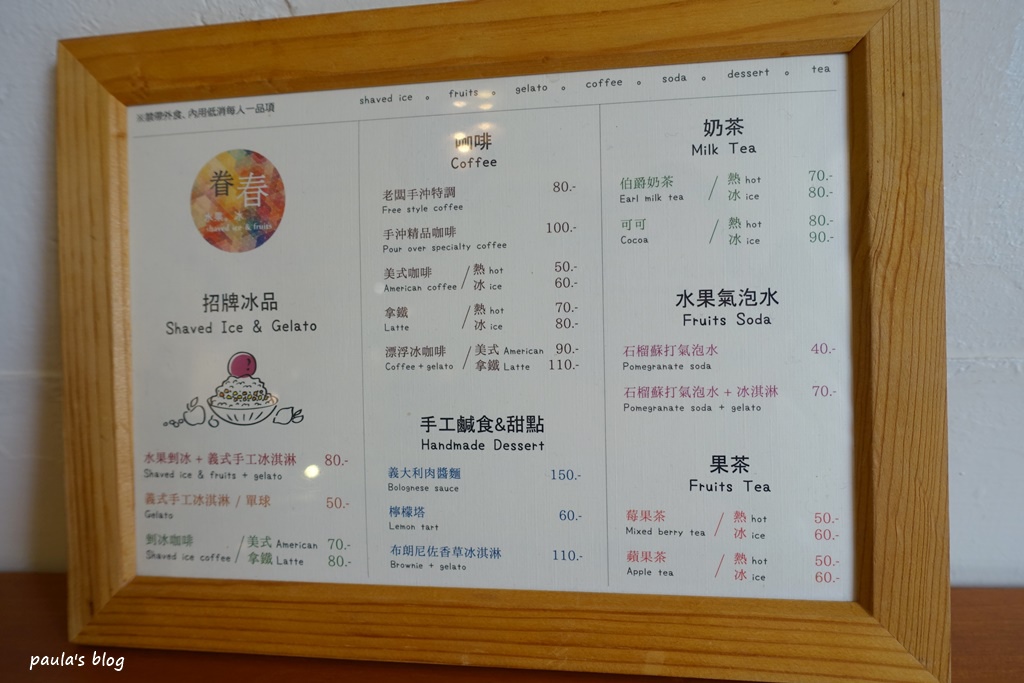 shaved ice 。 fruits 。 gelato 。 coffee 。 soda 。 dessert 。 tea
※禁帶外食、內用低消每人一品項
眷春
水果 冰
shaved ice & fruits
招牌冰品
Shaved Ice & Gelato
水果剉冰 + 義式手工冰淇淋 80.-
Shaved ice & fruits + gelato
義式手工冰淇淋 / 單球 50.-
Gelato
剉冰咖啡 / 美式 American 70.-
Shaved ice coffee 拿鐵 Latte 80.-
咖啡
Coffee
老闆手沖特調 80.-
Free style coffee
手沖精品咖啡 100.-
Pour over specialty coffee
美式咖啡 / 熱 hot 50.-
American coffee 冰 ice 60.-
拿鐵 / 熱 hot 70.-
Latte 冰 ice 80.-
漂浮冰咖啡 / 美式 American 90.-
Coffee + gelato 拿鐵 Latte 110.-
手工鹹食&甜點
Handmade Dessert
義大利肉醬麵 150.-
Bolognese sauce
檸檬塔 60.-
Lemon tart
布朗尼佐香草冰淇淋 110.-
Brownie + gelato
奶茶
Milk Tea
伯爵奶茶 / 熱 hot 70.-
Earl milk tea 冰 ice 80.-
可可 / 熱 hot 80.-
Cocoa 冰 ice 90.-
水果氣泡水
Fruits Soda
石榴蘇打氣泡水 40.-
Pomegranate soda
石榴蘇打氣泡水 + 冰淇淋 70.-
Pomegranate soda + gelato
果茶
Fruits Tea
莓果茶 / 熱 hot 50.-
Mixed berry tea 冰 ice 60.-
蘋果茶 / 熱 hot 50.-
Apple tea 冰 ice 60.-
paula's blog